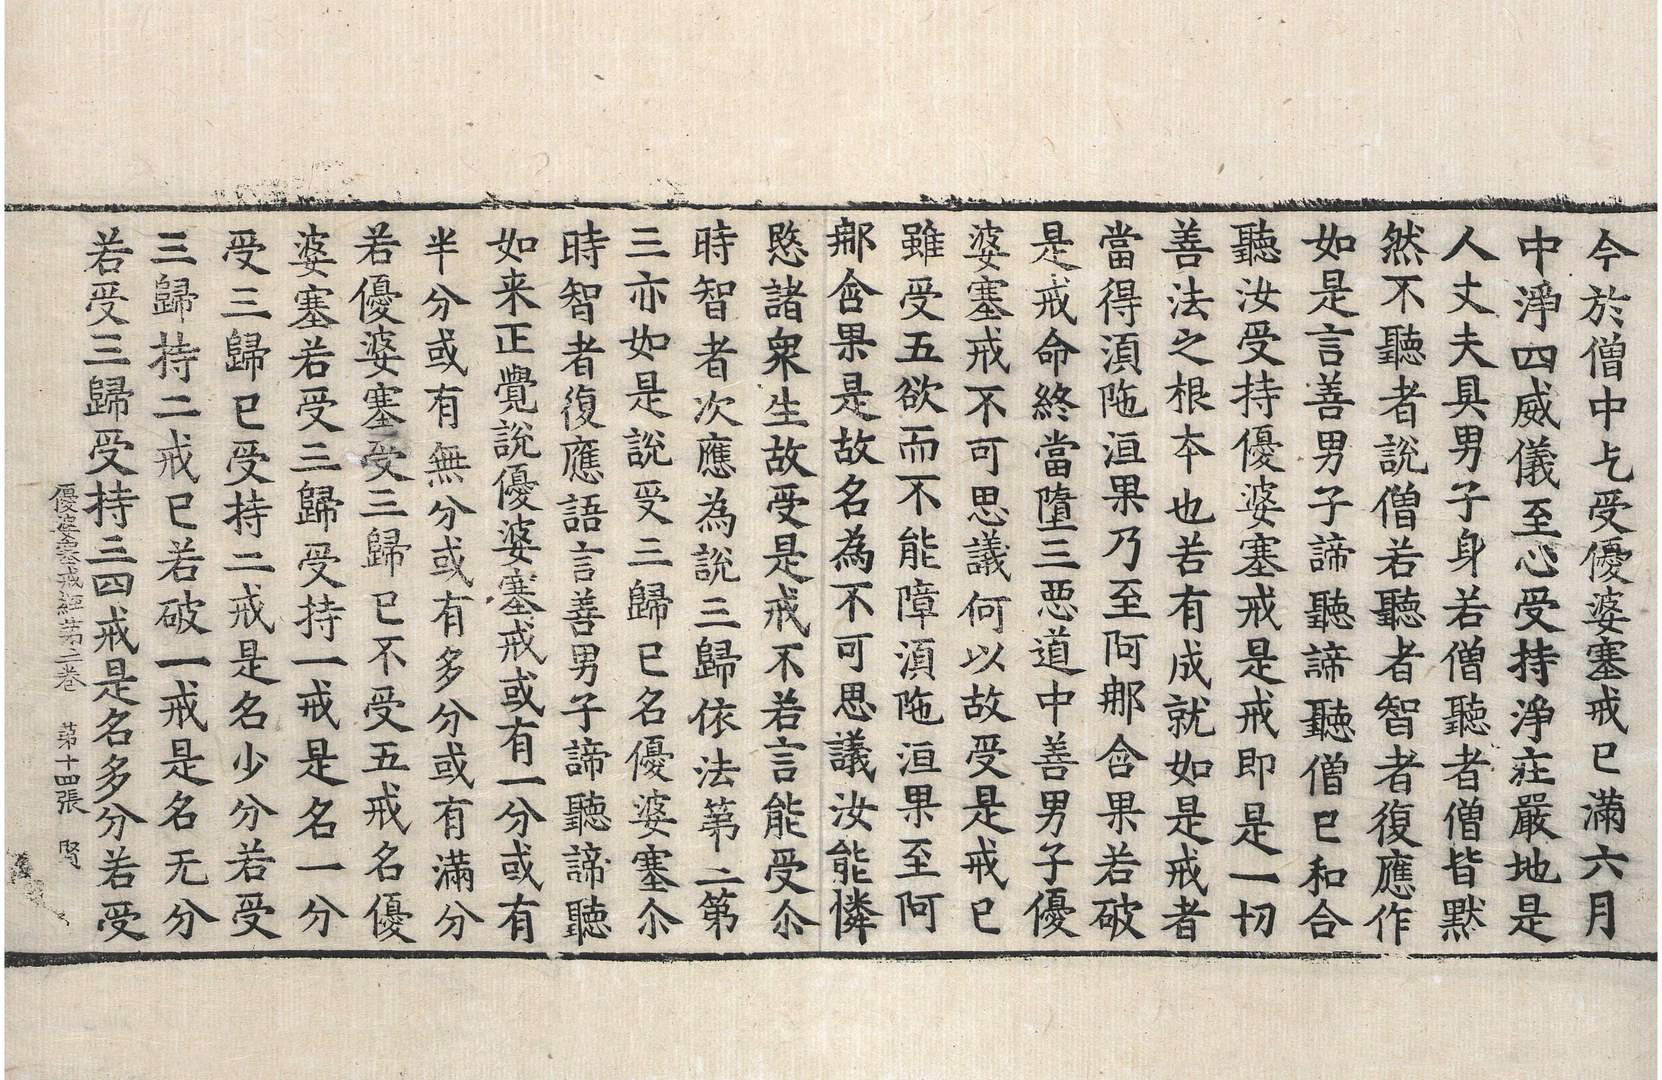 今於僧中乞受優婆塞戒已滿六月
中淨四威儀至心受持淨莊嚴地是
人丈夫具男子身若僧聽者僧皆默
然不聽者說僧若聽者智者復應作
如是言善男子諦聽諦聽僧已和合
聽汝受持優婆塞戒是戒即是一切
善法之根本也若有成就如是戒者
當得湏陁洹果乃至阿那含果若破
是戒命終當墮三惡道中善男子優
婆塞戒不可思議何以故受是戒已
雖受五欲而不能障湏陁洹果至阿
那含果是故名為不可思議汝能憐
愍諸衆生故受是戒不若言能受尒
時智者次應為說三歸依法第二第
三亦如是說受三歸已名優婆塞尒
時智者復應語言善男子諦聽諦聽
如来正覺說優婆塞戒或有一分或有
半分或有無分或有多分或有滿分
若優婆塞受三歸已不受五戒名優
婆塞若受三歸受持一戒是名一分
受三歸已受持二戒是名少分若受
三歸持二戒已若破一戒是名无分
若受三歸受持三四戒是名多分若受
優婆塞戒經第三卷 第十四張 賢